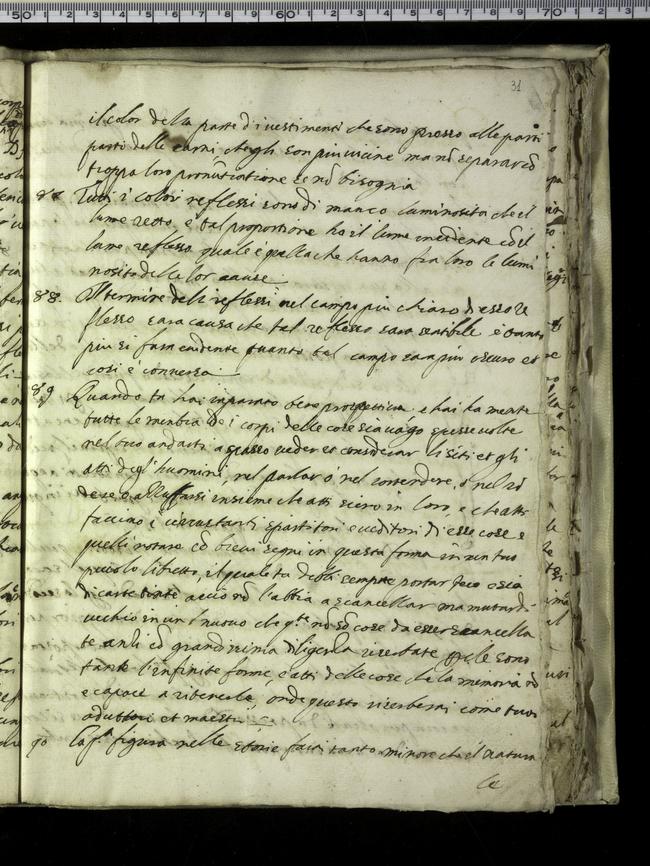 31
il color della parte d i uestimenti che sono presso alle parti
parti delle carni che gli son piu uicine ma nō separar cō
troppa loro pronuntiatione se nō bisognia
87 Tutti i colori reflessi sono di manco luminosità che il
lume retto, e tal proportione ha il lume incidente cō il
lume reflesso quale è quella che hanno fra loro le lumi
nosità delle lor cause.
88. Il termine delli reflessi nel campo piu chiaro d esso re
flesso sara causa che tal reflesso sara sensibile e tanto
piu si fara euidente quanto tal campo sara piu oscuro et
cosi è conuerso.
89 Quando tu hai imparato bene prospettiua e hai ha mente
tutte le membra de i corpi delle cose sia uago spesse uolte
nel tuo andarti a spasso ueder et considerar li siti et gli
atti degl' huomini, nel parlar o' nel contendere, o nel ri
dere o alluffarsi insieme che atti sieno in loro, e che atti
faccino i circustanti spartitori e ueditori di esse cose e
quelli notare cō breui segni in questa forma in un tuo
piccolo libretto, il quale tu debbi sempre portar teco e sia
di carte tinte acciò nō l'abbia a scancellar ma mutar di
uechio in un nuouo che q.te nō sō cose da esser scancella
te anzi cō grandissima diligenza riserbate p che sono
tante l'infinite forme e atti delle cose che la memoria nō
e capace a ritenerle, onde queste riserberai come tuoi
aduttori et maestri
90 La p.a figura nelle storie farai tanto minore che il natura
le